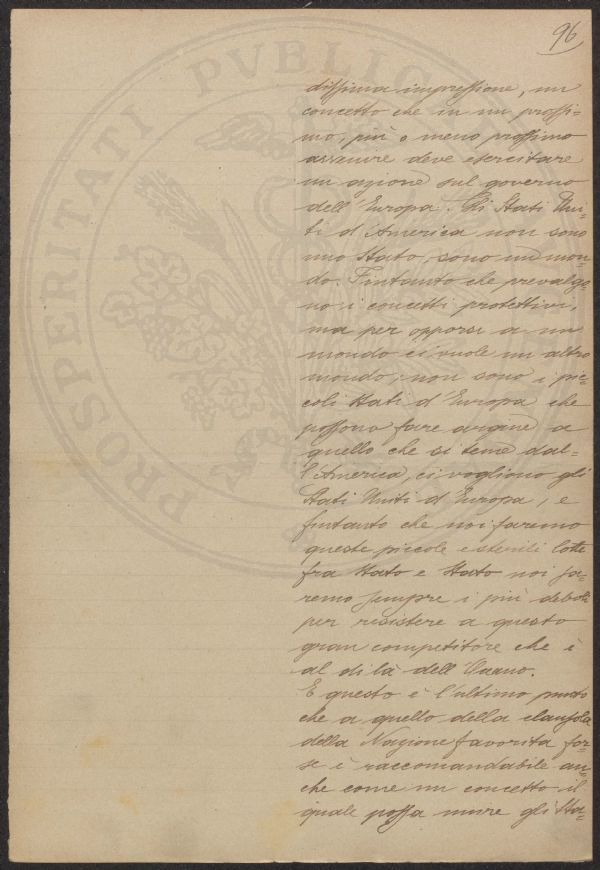 96
PROSPERITATI PVBLICAE
dissima impressione, un
concetto che in un prossi=
mo, più o meno prossimo
assauvre deve esercitare
un azione sul governo
dell'Europa. Gli Stati Uni=
ti d'America non sono
uno Stato, sono un mon=
do. Fintanto che prevalgo=
no i concetti protettivi,
ma per opporsi a un
mondo ci vuole un altro
mondo; non sono i pic=
coli Stati d'Europa che
possono fare argine a
quello che si teme dal=
l'America, ci vogliono gli
Stati Uniti d'Europa, e
fintanto che noi faremo
queste piccole e sterili lotte
fra Stato e Stato noi sa=
remo sempre i più deboli
per resistere a questo
gran competitore che è
al di là dell'Oceano.
E questo è l'ultimo punto
che a quello della clausola
della Nazione favorita for=
se è raccomandabile an=
che come un concetto il
quale possa unire gli Sta=